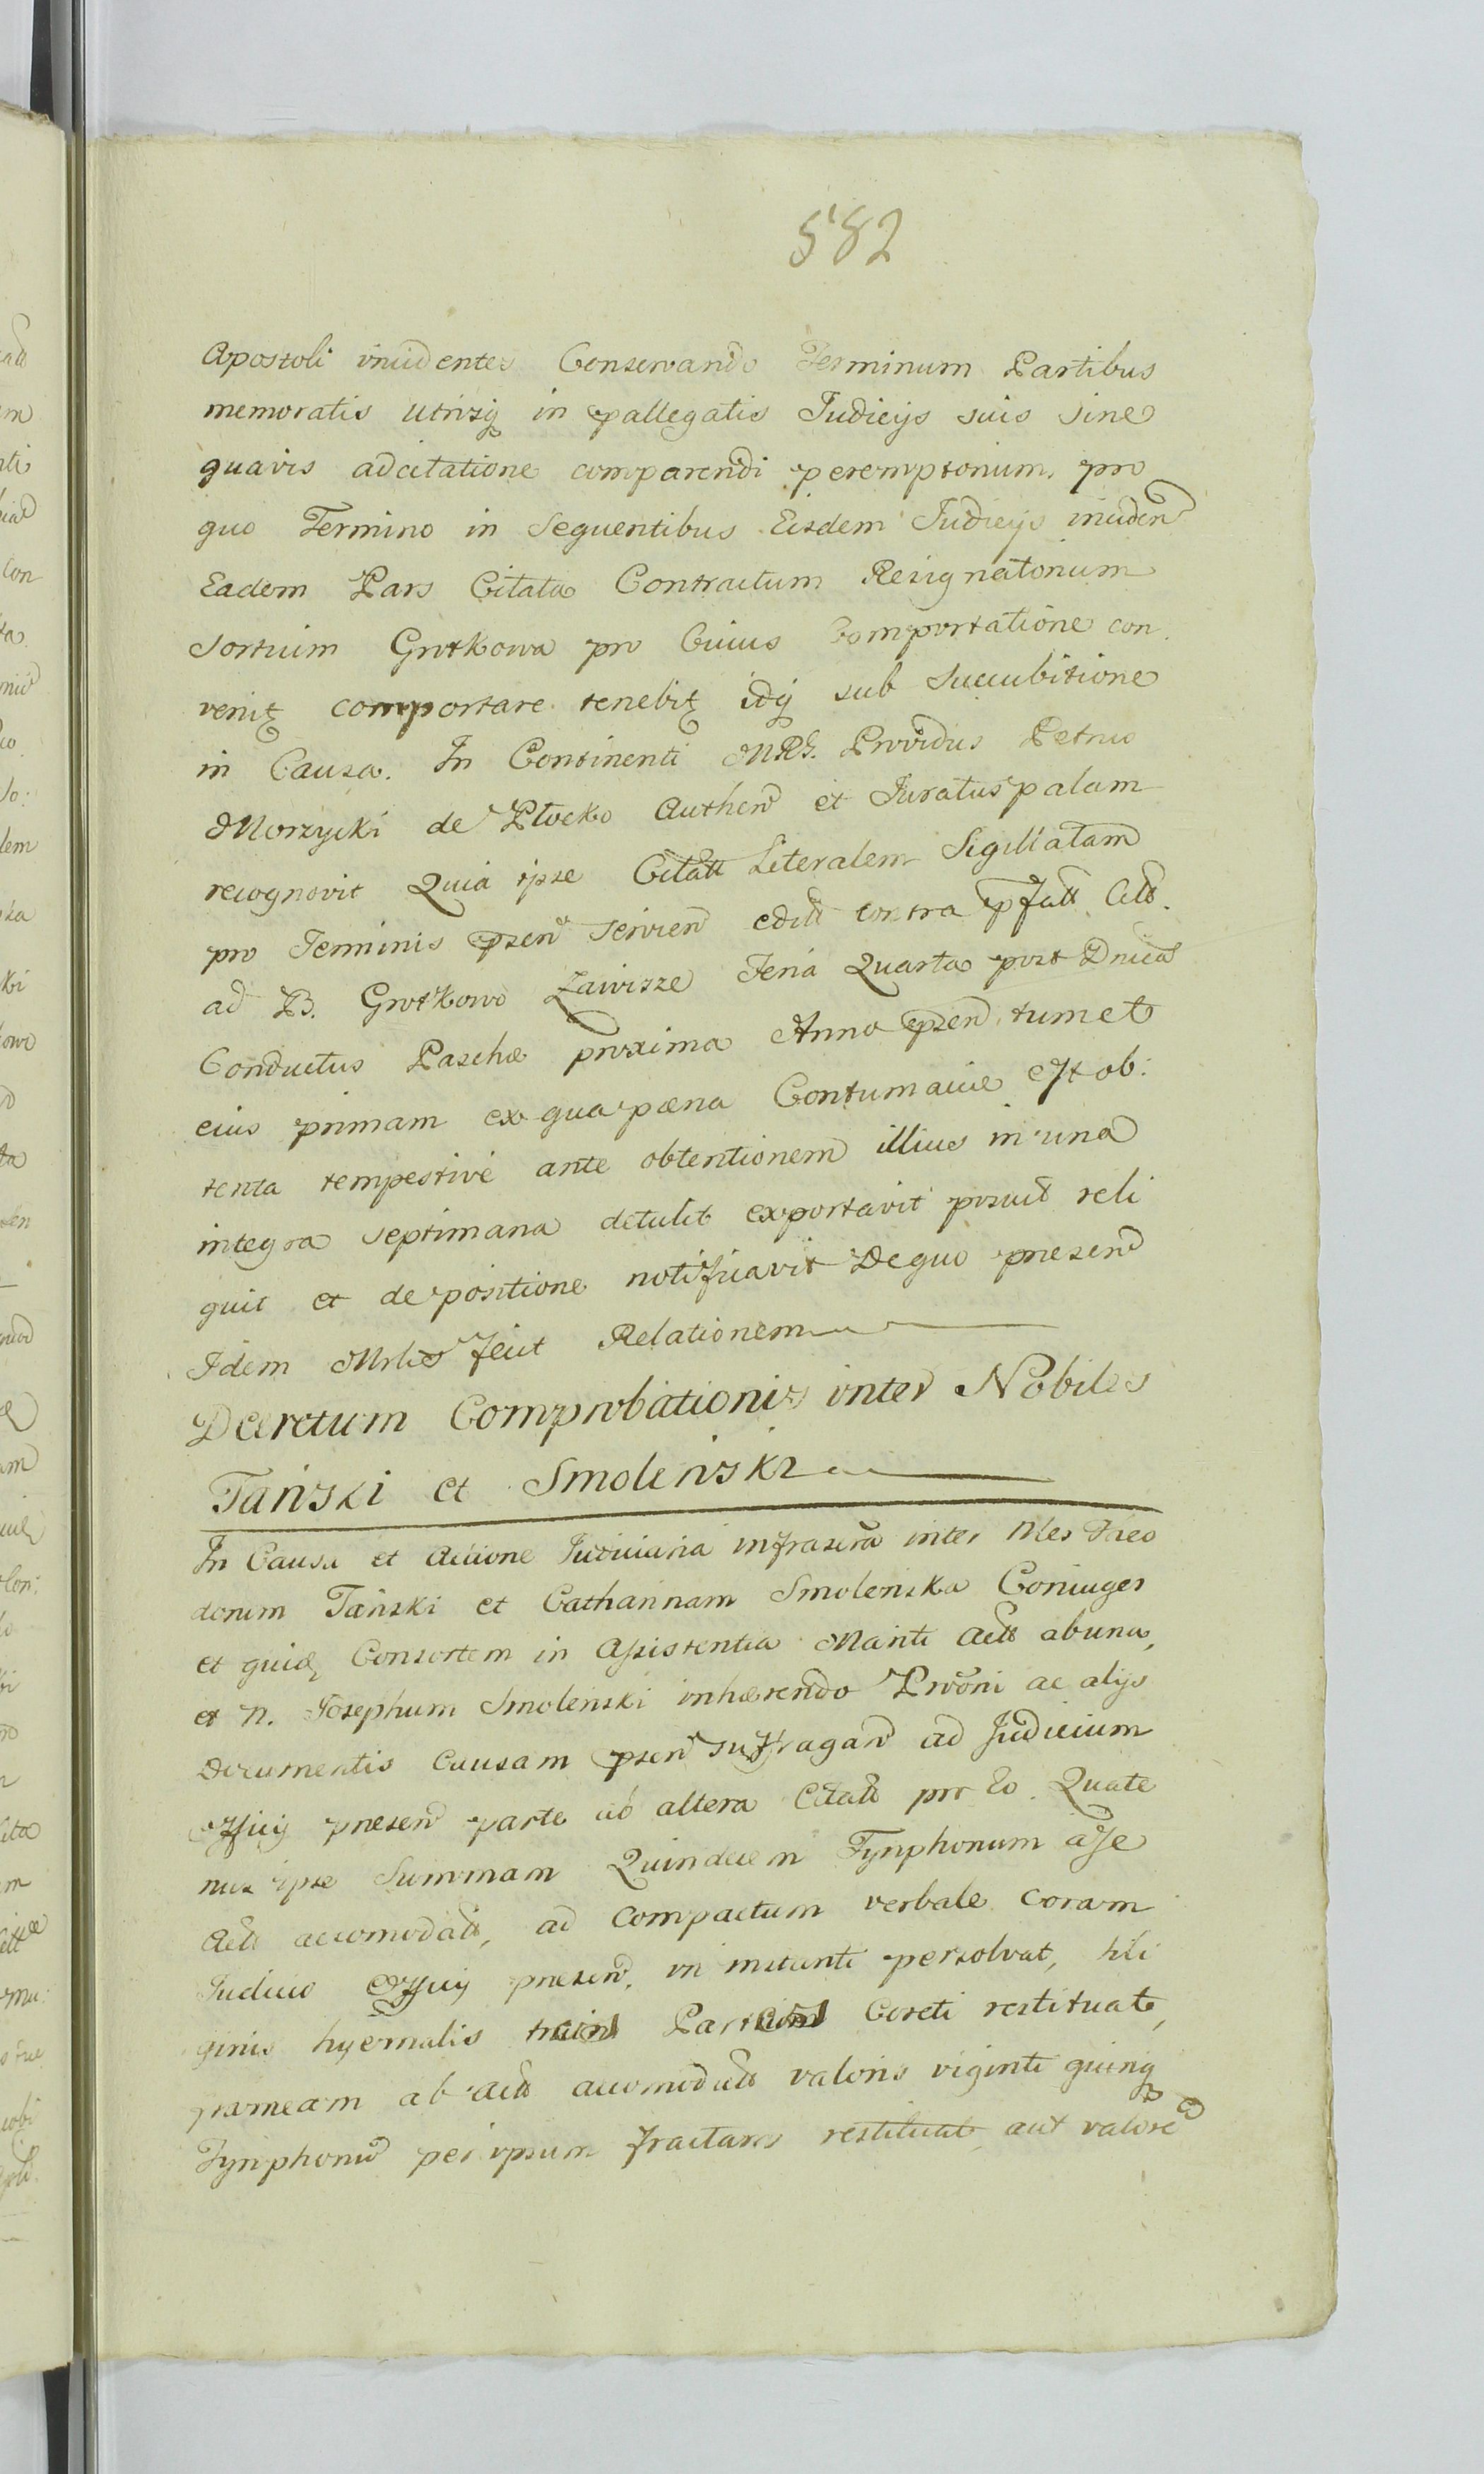 582
Apostoli incidentes Conservando Terminum Partibus
memoratis utrisq in pallegatis Judicijs suis sine
quavis adcitatione comparendi peremptorium, pro
quo Termino in Sequentibus Eisdem Judicijs inciden
Eadem Pars Citata Contractum Resignatorium
Sortium Grotkowa pro Cuius Comportatione con
venit comportare tenebit idq sub Succubitione
in Causa. In Continenti MRG. Providus Petrus
Morzycki de Plocko Authen et Juratus palam
recognovit Quia ipse Citatt Literalem Sigillatam
pro Terminis psen servien editt contra pfatt Citt.
ad B. Grotkowo Zawisze Feria Quarta post Dnicã
Conductus Paschæ proxima Anno psen tum et
eius primam ex qua pæna Contumaciæ est ob:
tenta tempestivé ante obtentionem illius in una
integra septimana detulit exportavit posuit reli
quit et de positione notificavit De quo presen
Idem Mrlis fecit Relationem
Decretum Comprobationis inter Nobiles
Tański et Smoleński
In Causa et Actione Judiciaria infrascra inter Nles Theo
dorum Tański et Catharinam Smolenska Coniuges
et quidẽ Consortem in Assistentia Mariti Actt ab una,
et N. Josephum Smolenski inhærendo Prõoni ac alijs
Documentis Causam psen suffragan ad Judicium
Officij presen parte ab altera Citatt pro Eo. Quate
nus ipse Summam Quindecem Tynphonum a se
Actt accomodatt, ad compactum verbale coram
Judicio Officij presen, in instanti persolvat, sili
ginis hyemalis Coreti restituat,
frameam ab Actt accomodatt valoris viginti quinq
Tynphonũ per ipsum fractam restituat aut valorẽ